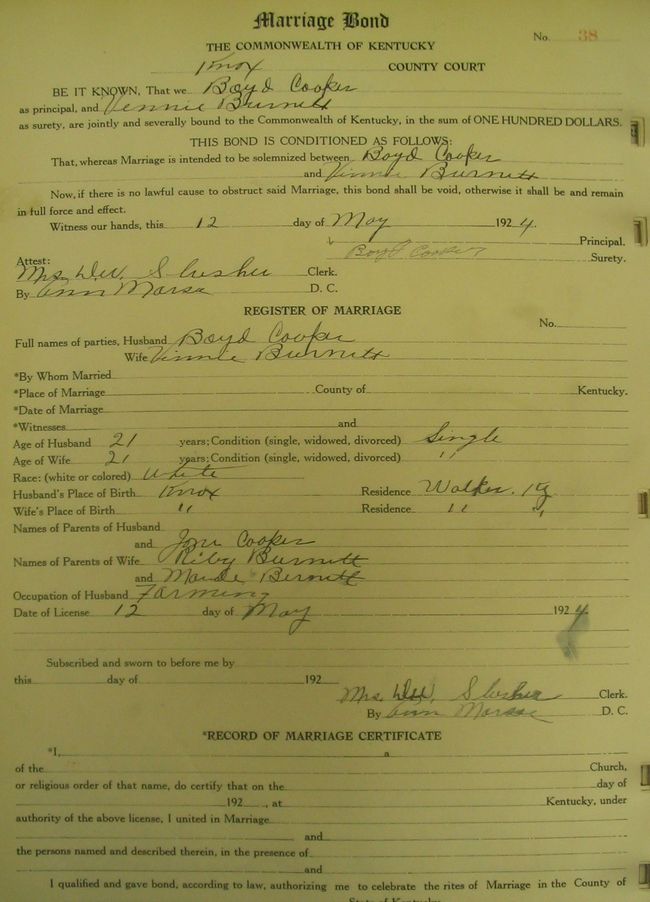 Marriage Bond
No. 38
THE COMMONWEALTH OF KENTUCKY
Knox COUNTY COURT
BE IT KNOWN, That we Boyd Cooper
as principal, and Vennie Burnett
as surety, are jointly and severally bound to the Commonwealth of Kentucky, in the sum of ONE HUNDRED DOLLARS.
THIS BOND IS CONDITIONED AS FOLLOWS:
That, whereas Marriage is intended to be solemnized between Boyd Cooper
and Vinnie Burnett
Now, if there is no lawful cause to obstruct said Marriage, this bond shall be void, otherwise it shall be and remain
in full force and effect.
Witness our hands, this 12 day of May 1924.
Principal.
Boyd Cooper Surety.
Attest:
Mrs. Slusher Clerk.
By Ann D. C.
REGISTER OF MARRIAGE
No.
Full names of parties, Husband Boyd Cooper
Wife Vinnie Burnett
*By Whom Married
*Place of Marriage County of Kentucky.
*Date of Marriage
*Witnesses and
Age of Husband 21 years; Condition (single, widowed, divorced) Single
Age of Wife 21 years; Condition (single, widowed, divorced) "
Race: (white or colored) White
Husband's Place of Birth Knox Residence Walker, Ky
Wife's Place of Birth " Residence " "
Names of Parents of Husband
and Cooper
Names of Parents of Wife Riby Burnett
and Maude Bernett
Occupation of Husband Farming
Date of License 12 day of May 1924
Subscribed and sworn to before me by
this day of 192
Mrs. Slusher Clerk.
By Ann D. C.
*RECORD OF MARRIAGE CERTIFICATE
*I, a
of the Church,
or religious order of that name, do certify that on the day of
192 , at Kentucky, under
authority of the above license, I united in Marriage
and
the persons named and described therein, in the presence of
and
I qualified and gave bond, according to law, authorizing me to celebrate the rites of Marriage in the County of
State of Kentucky